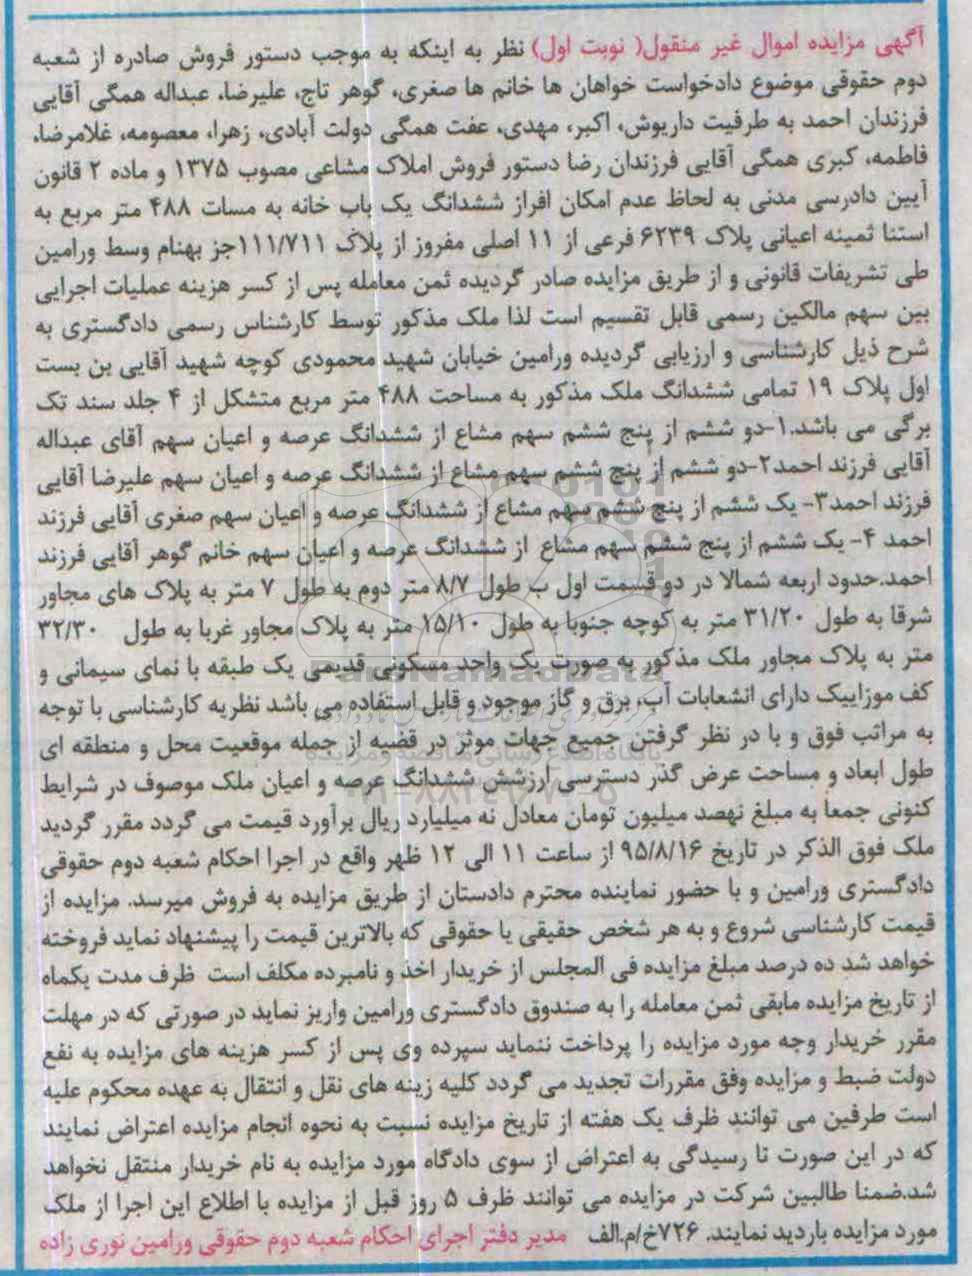 آگهی مزایده اموال غیر منقول( نوبت اول) نظر به اینکه به موجب دستور فروش صادره از شعبه
دوم حقوقی موضوع دادخواست خواهان ها خانم ها صغری، گوهر تاج، علیرضا، عبداله همگی آقایی
فرزندان احمد به طرفیت داریوش، اکبر، مهدی، عفت همگی دولت آبادی، زهرا، معصومه، غلامرضا،
فاطمه، کبری همگی آقایی فرزندان رضا دستور فروش املاک مشاعی مصوب ۱۳۷۵ و ماده ۲ قانون
آیین دادرسی مدنی به لحاظ عدم امکان افراز ششدانگ یک باب خانه به مسات ۴۸۸ متر مربع به
استنا ثمینه اعیانی پلاک ۶۲۳۹ فرعی از ۱۱ اصلی مفروز از پلاک ۱۱۱/۷۱۱جز بهنام وسط ورامین
طی تشریفات قانونی و از طریق مزایده صادر گردیده ثمن معامله پس از کسر هزینه عملیات اجرایی
بین سهم مالکین رسمی قابل تقسیم است لذا ملک مذکور توسط کارشناس رسمی دادگستری به
شرح ذیل کارشناسی و ارزیابی گردیده ورامین خیابان شهید محمودی کوچه شهید آقایی بن بست
اول پلاک ۱۹ تمامی ششدانگ ملک مذکور به مساحت ۴۸۸ متر مربع متشکل از ۴ جلد سند تک
برگی می باشد.۱-دو ششم از پنج ششم سهم مشاع از ششدانگ عرصه و اعیان سهم آقای عبداله
آقایی فرزند احمد۲-دو ششم از پنج ششم سهم مشاع از ششدانگ عرصه و اعیان سهم علیرضا آقایی
فرزند احمد۳- یک ششم از پنج ششم سهم مشاع از ششدانگ عرصه و اعیان سهم صغری آقایی فرزند
احمد ۴- یک ششم از پنج ششم سهم مشاع از ششدانگ عرصه و اعیان سهم خانم گوهر آقایی فرزند
احمد.حدود اربعه شمالا در دو قسمت اول ب طول ۸/۷ متر دوم به طول ۷ متر به پلاک های مجاور
شرقا به طول ۳۱/۲۰ متر به کوچه جنوبا به طول ۱۵/۱۰ متر به پلاک مجاور غربا به طول ۳۲/۳۰
متر به پلاک مجاور ملک مذکور به صورت یک واحد مسکونی قدیمی یک طبقه با نمای سیمانی و
کف موزاییک دارای انشعابات آب، برق و گاز موجود و قابل استفاده می باشد نظریه کارشناسی با توجه
به مراتب فوق و با در نظر گرفتن جمیع جهات موثر در قضیه از جمله موقعیت محل و منطقه ای
طول ابعاد و مساحت عرض گذر دسترسی ارزشش ششدانگ عرصه و اعیان ملک موصوف در شرایط
کنونی جمعا به مبلغ نهصد میلیون تومان معادل نه میلیارد ریال برآورد قیمت می گردد مقرر گردید
ملک فوق الذکر در تاریخ ۹۵/۸/۱۶ از ساعت ۱۱ الی ۱۲ ظهر واقع در اجرا احکام شعبه دوم حقوقی
دادگستری ورامین و با حضور نماینده محترم دادستان از طریق مزایده به فروش میرسد. مزایده از
قیمت کارشناسی شروع و به هر شخص حقیقی یا حقوقی که بالاترین قیمت را پیشنهاد نماید فروخته
خواهد شد ده درصد مبلغ مزایده فی المجلس از خریدار اخذ و نامبرده مکلف است ظرف مدت یکماه
از تاریخ مزایده مابقی ثمن معامله را به صندوق دادگستری ورامین واریز نماید در صورتی که در مهلت
مقرر خریدار وجه مورد مزایده را پرداخت ننماید سپرده وی پس از کسر هزینه های مزایده به نفع
دولت ضبط و مزایده وفق مقررات تجدید می گردد کلیه زینه های نقل و انتقال به عهده محکوم علیه
است طرفین می توانند ظرف یک هفته از تاریخ مزایده نسبت به نحوه انجام مزایده اعتراض نمایند
که در این صورت تا رسیدگی به اعتراض از سوی دادگاه مورد مزایده به نام خریدار منتقل نخواهد
شد.ضمنا طالبین شرکت در مزایده می توانند ظرف ۵ روز قبل از مزایده با اطلاع این اجرا از ملک
مورد مزایده بازدید نمایند. ۷۲۶خ/م.الف مدیر دفتر اجرای احکام شعبه دوم حقوقی ورامین نوری زاده